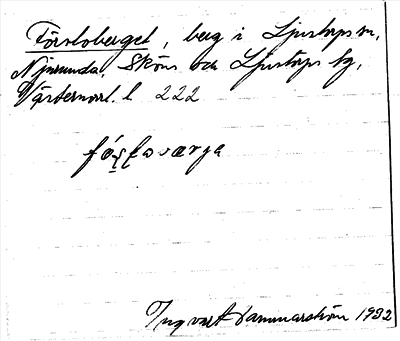 Törsloberget, berg i Ljustorps sn,
Njurunda, Sköns och Ljustorps tg,
Västernorrl. l 222
Ingvar Hammarström 1932